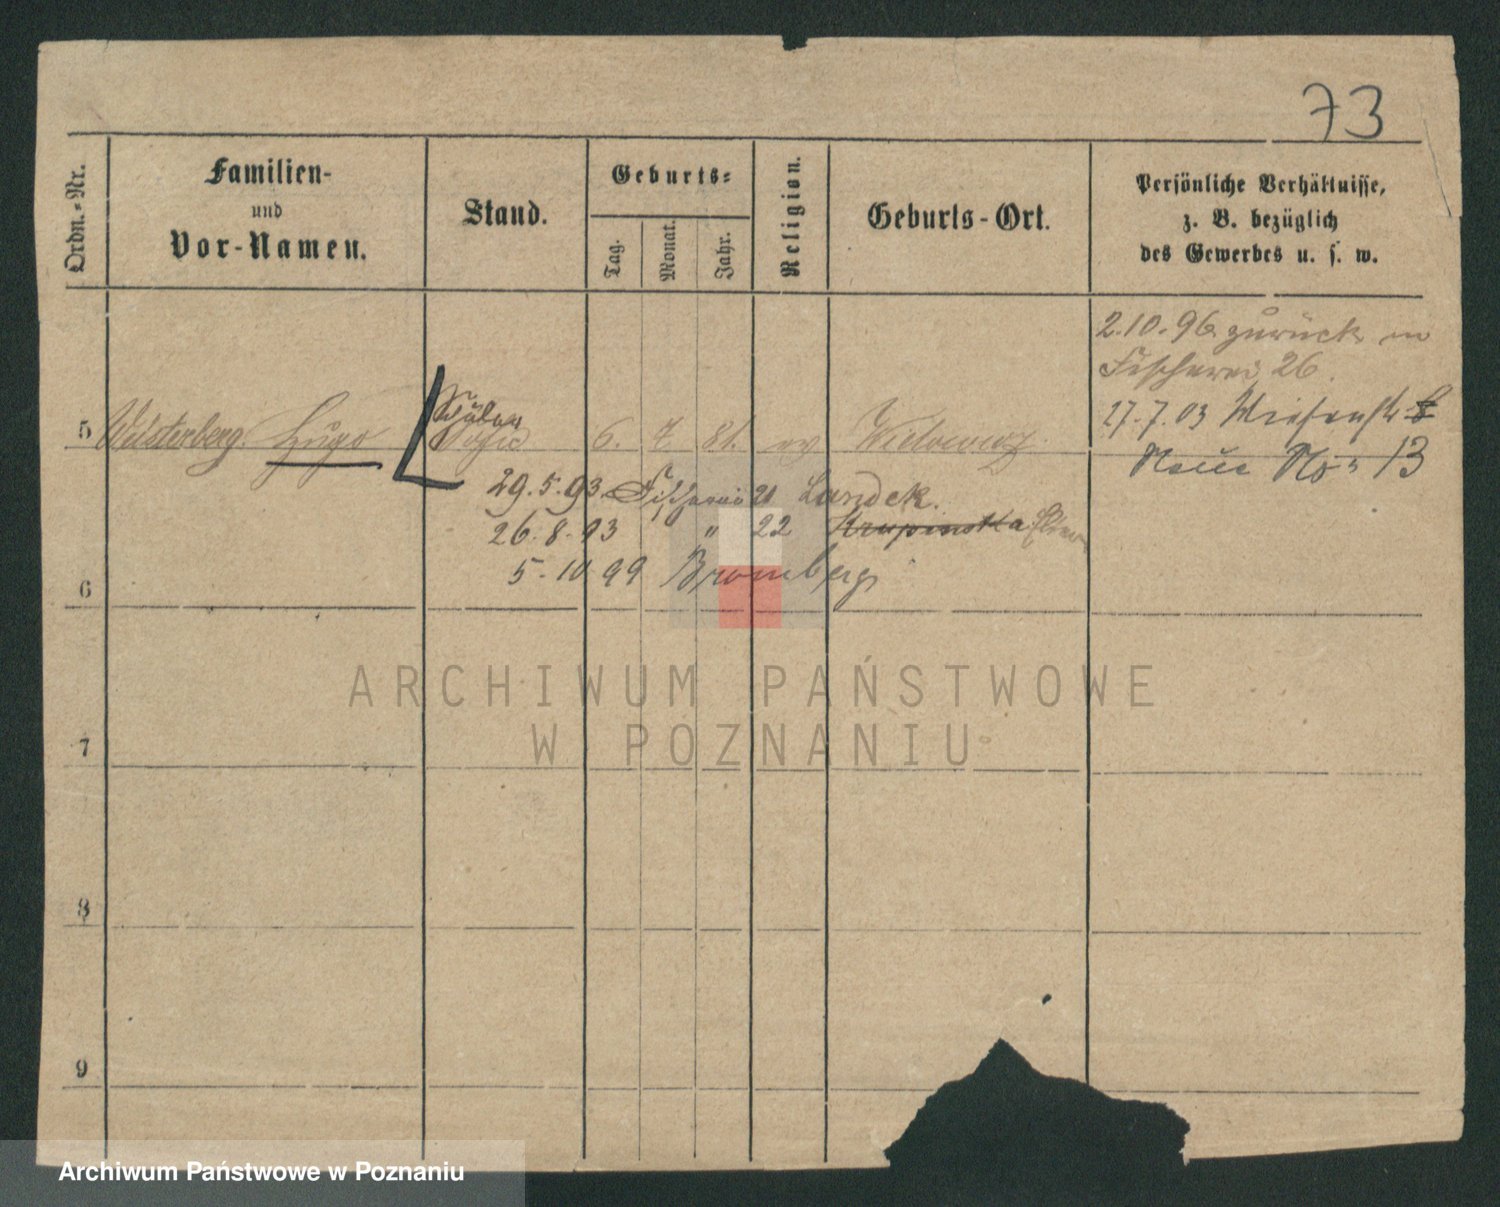 73
Ordn.-Nr.
Familien-
und
Vor-Namen.
Stand.
Geburts-
Tag.
Monat.
Jahr.
Religion.
Geburts-Ort.
Persönliche Verhältnisse,
z. B. bezüglich
des Gewerbes u. s. w.
2.10.96. zurück in
Fischerei 26.
27.7.03 Wiesenstr. 8
Neue No 13
5 Wüsterberg. Hugo 6. 7. 81. ev
29.5.93. Fischerei 21 Landek.
26.8.93 " 22
5.10 99 Bromberg
6
7
8
9
ARCHIWUM PAŃSTWOWE
W POZNANIU
Archiwum Państwowe w Poznaniu